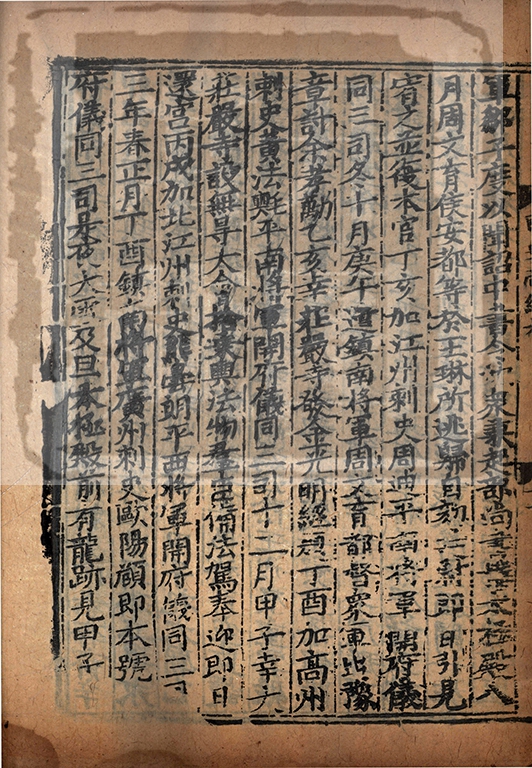 軍鄒子度以聞詔中書令沈衆兼起部尚書構太極殿八
月周文育侯安都等於王琳所逃歸自劾廷尉即日引見
宥之並復本官丁亥加江州刺史周迪平南將軍開府儀
同三司冬十月庚午遣鎮南將軍周文育都督衆軍出豫
章討余孝勱乙亥幸莊嚴寺發金光明經題丁酉加高州
刺史黃法𣰰平南將軍開府儀同三司十二月甲子幸大
莊嚴寺設無㝵大會捨乘輿法物羣臣備法駕奉迎即日
還宮丙戌加北江州刺史熊曇朗平西將軍開府儀同三司
三年春正月丁酉鎮南將軍廣州刺史歐陽頠即本號
府儀同三司是夜大雪及旦太極殿前有龍跡見甲子